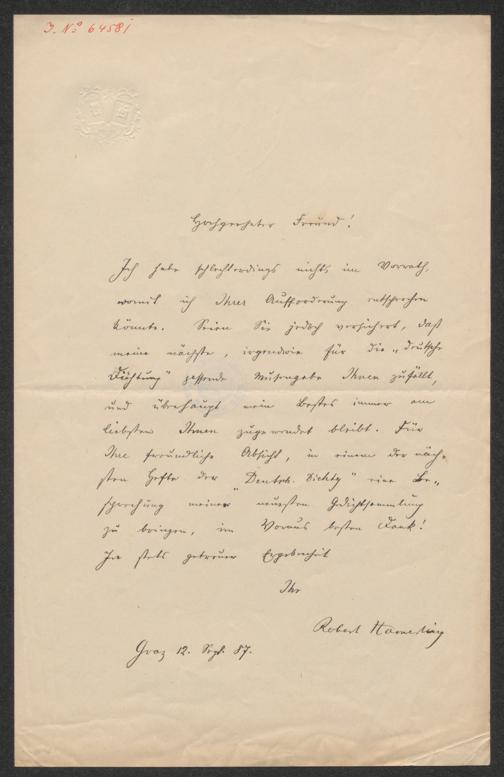 J. No 64581
Hochgeehrter Freund!
Ich habe schlechterdings nichts im Vorrath,
womit ich Ihrer Aufforderung entsprechen
könnte. Seien Sie jedoch versichert, daß
meine nächste, irgendwie für die „Deutsche
Dichtung" passende Musengabe Ihnen zufällt,
und überhaupt mein Bestes immer am
liebsten Ihnen zugewendet bleibt. Für
Ihre freundliche Absicht, in einem der näch-
sten Hefte der „Deutsch. Dichtg" eine Be-
sprechung meiner neuesten Gedichtsammlung
zu bringen, im Voraus besten Dank!
In stets getreuer Ergebenheit
Ihr
Robert Hamerling
Graz 12. Sept. 87.